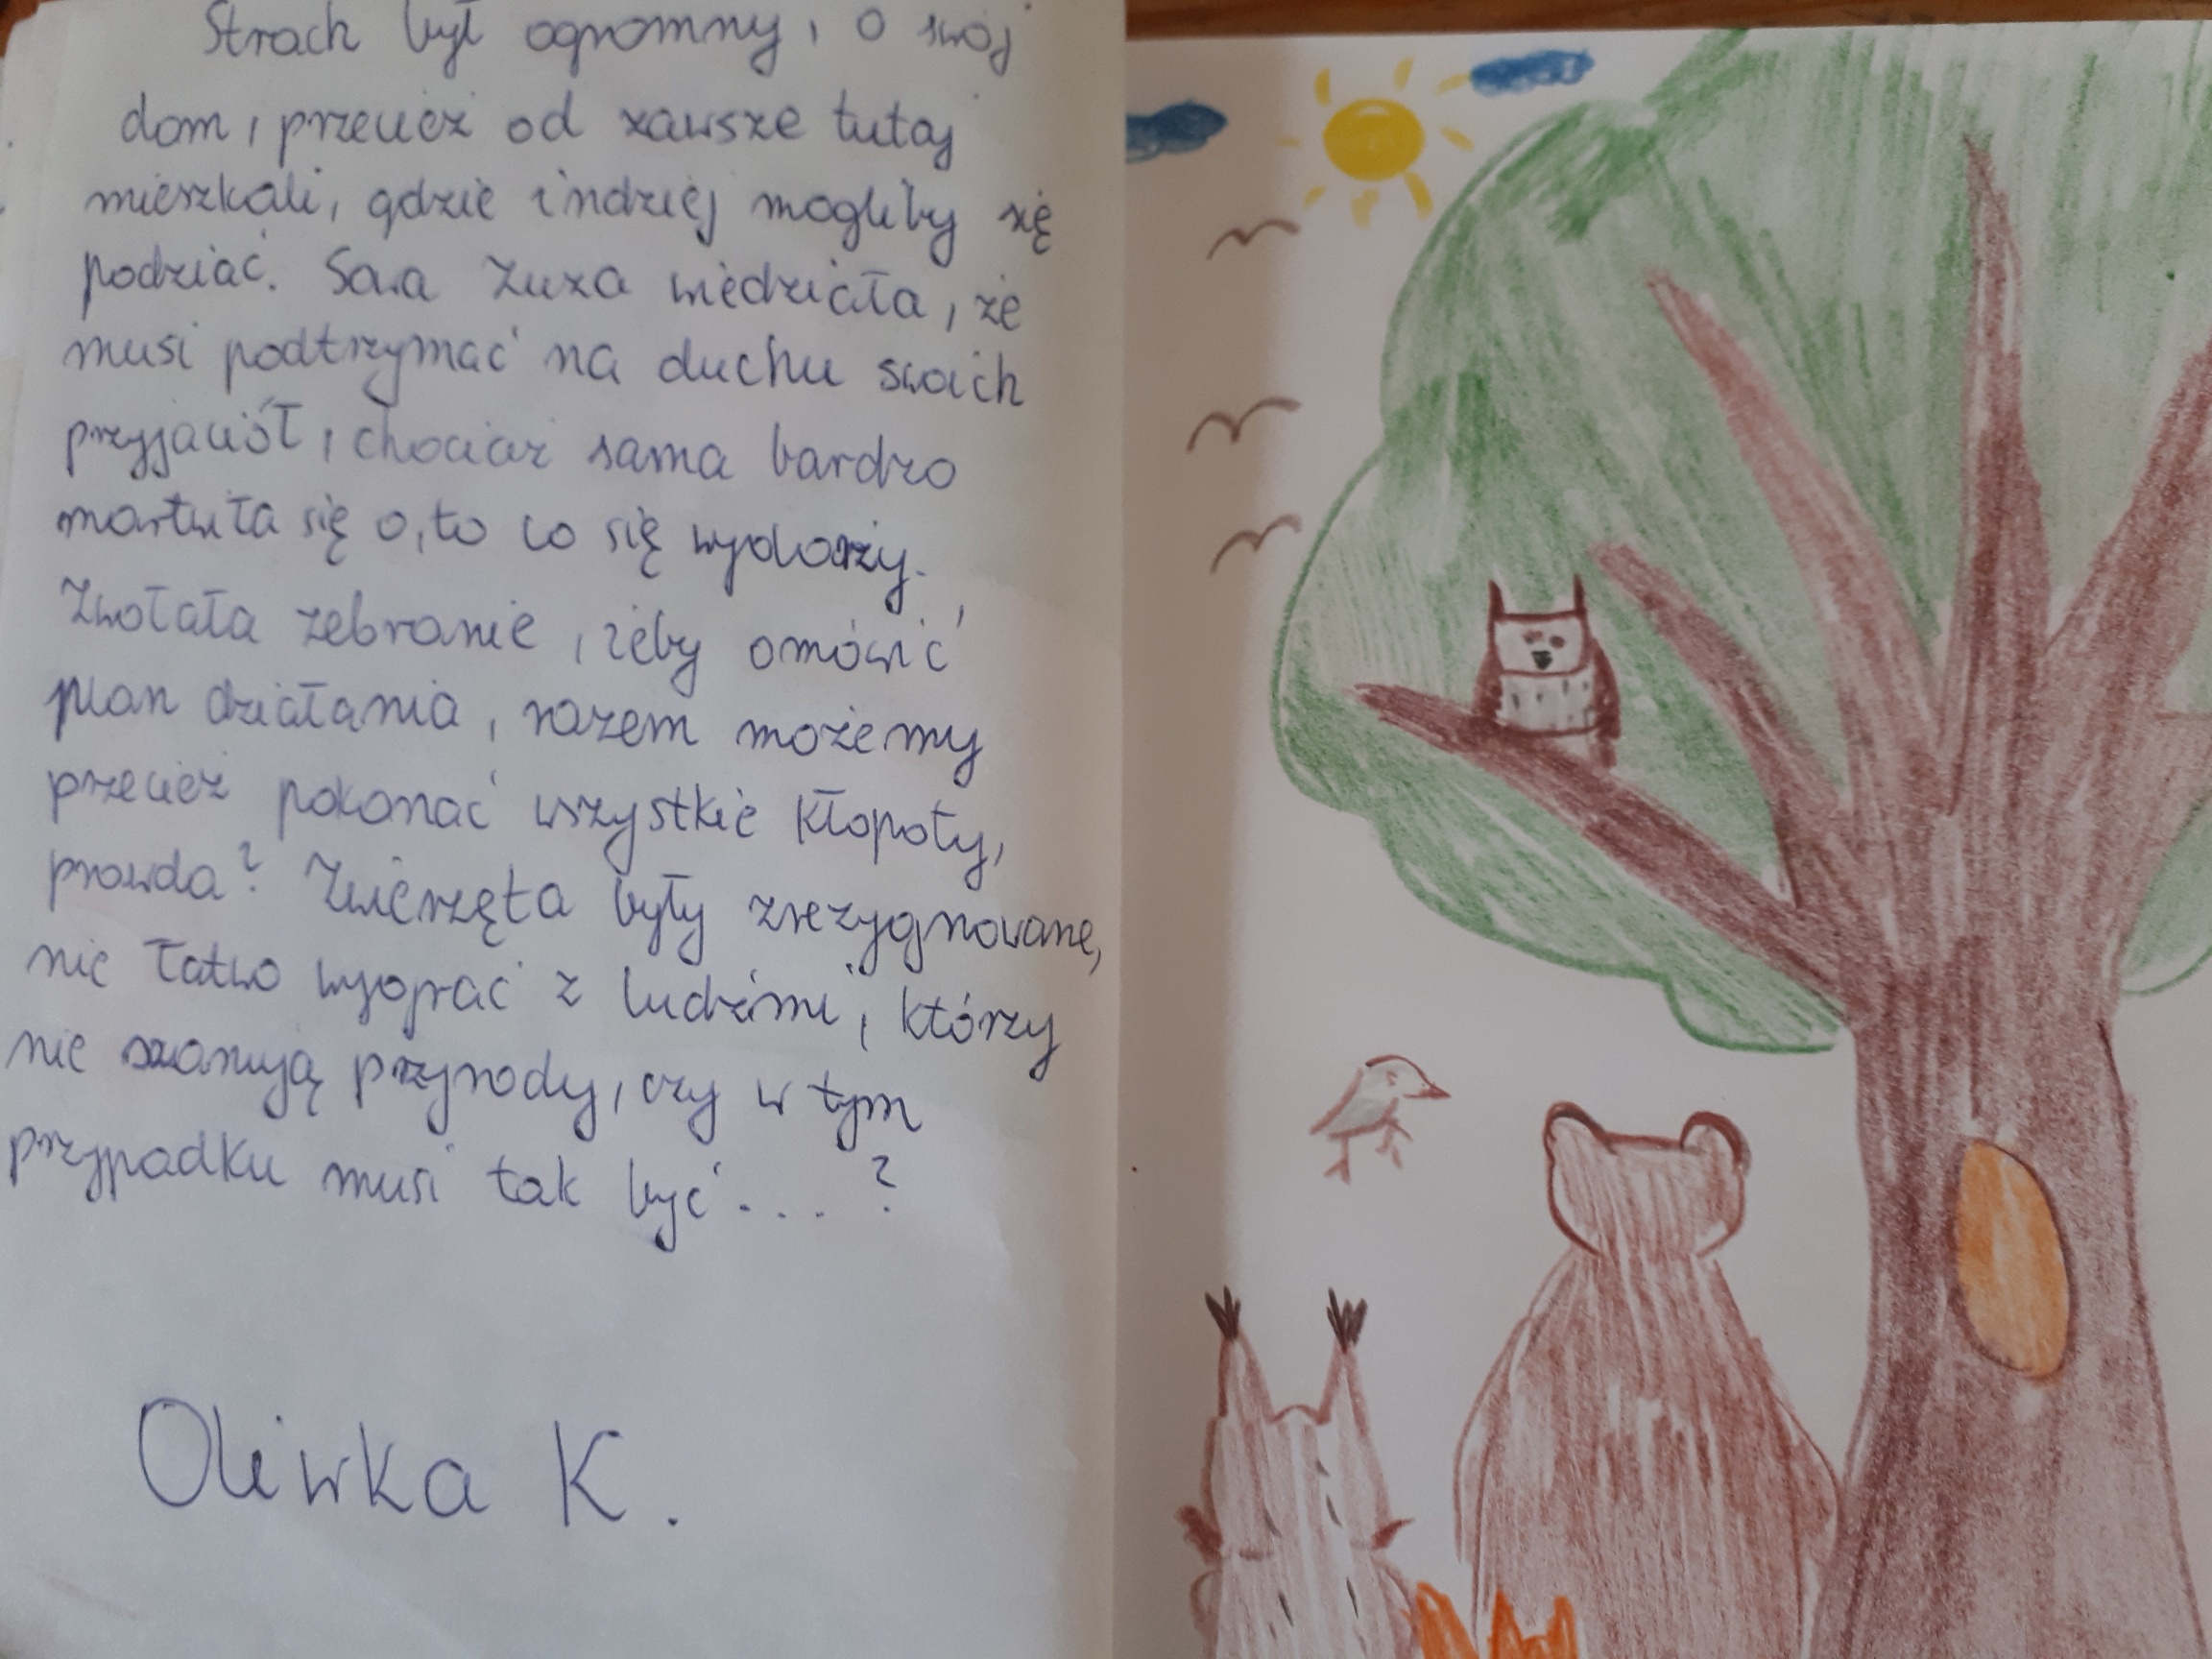 Strach był ogromny, o swój
dom, przecież od zawsze tutaj
mieszkali, gdzie indziej mogliby się
podziać. Sowa Zuza wiedziała, że
musi podtrzymać na duchu swoich
przyjaciół, chociaż sama bardzo
martwiła się o, to co się wydarzy.
Zwołała zebranie, żeby omówić
plan działania, razem możemy
przecież pokonać wszystkie kłopoty,
prawda? Zwierzęta były zrezygnowane,
nie łatwo wygrać z ludźmi, którzy
nie szanują przyrody, czy w tym
przypadku musi tak być....?
Oliwka K.